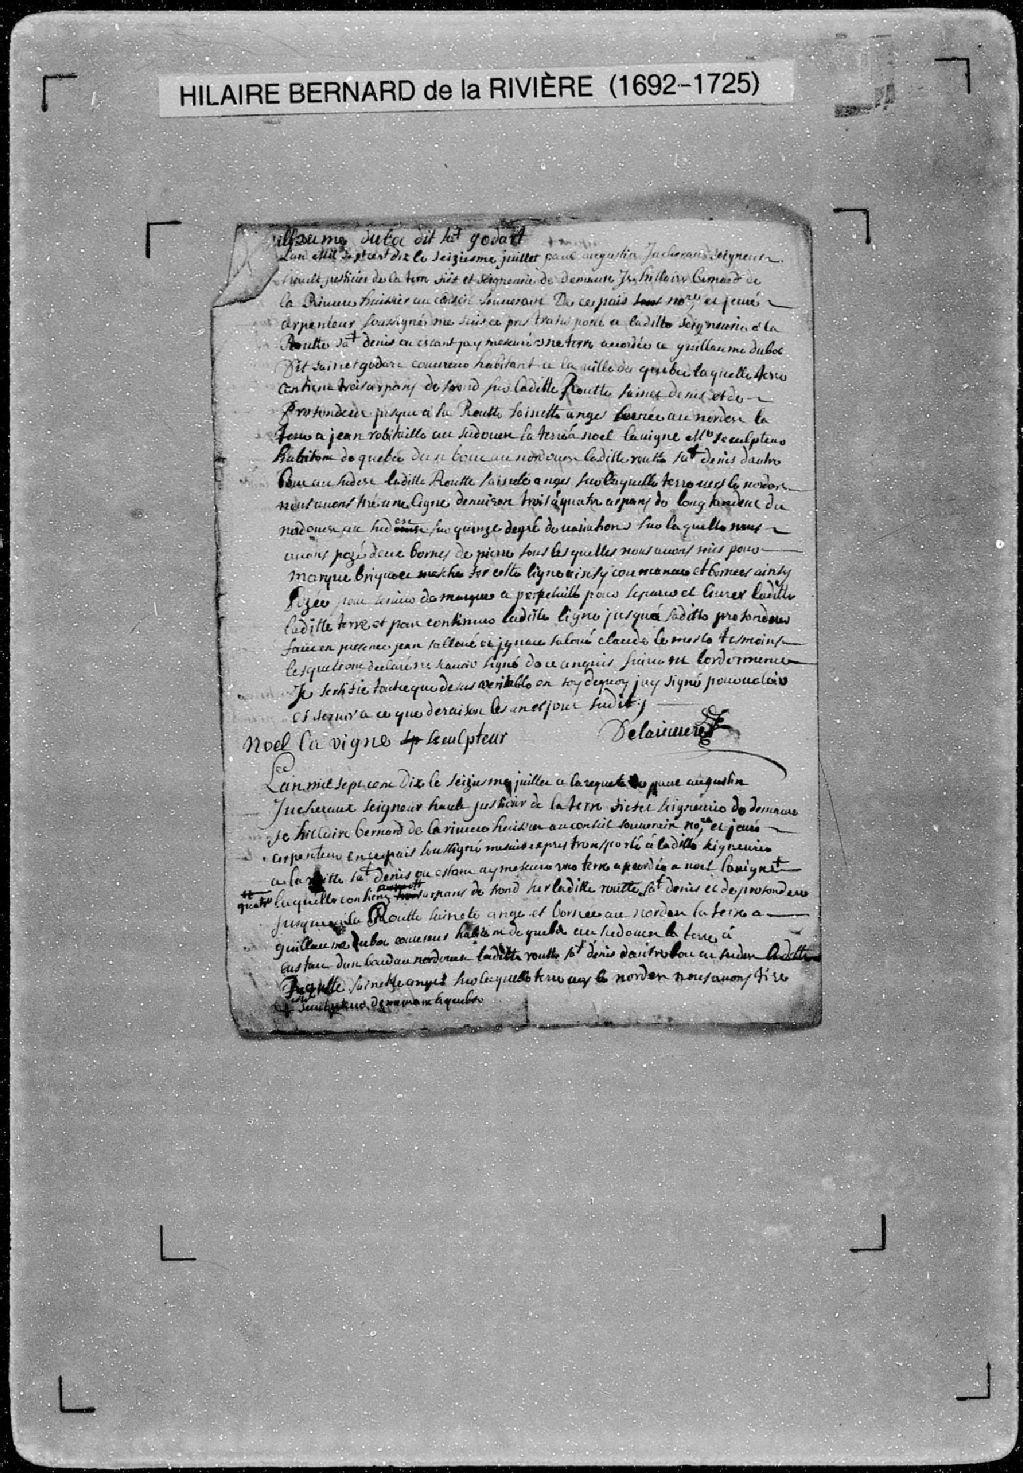 HILAIRE BERNARD de la RIVIÈRE (1692-1725)
duboc dit st godart
Lan mil sept cent dix le seiziesme juillet paul augustin Juchereau seigneur
hault justicier de la terre fief et seigneurie de demaure Je hillaire bernard de
la Riviere huissier au conseil souverain De ce pais et juré
arpenteur soussigné me suis expres transporté a laditte seigneurie a la
Routte st denis ou estant jay mesuré une terre accordée a guillaume duboc
Dit sainct godard couvreur habitant a la ville de quebec laquelle terre
contient trois arpans de frond sur laditte Routte sainct denis et de
profondeur jusque a la Routte sainette ange bornée au norden la
terre a jean robitaille au sudouen la terre a noel lavigne sculpteur
habitant de quebec dun bout au nordouen laditte routte st denis dautre
bout au sudest laditte Routte sainete anges sur laquelle terre vers le norden
nous avons tiré une ligne denviron trois a quatre arpans de long tendant du
nordouen au sud est sur quinze degré de variation sur laquelle nous
avons pozé deux bornes de pierre sous lesquelles nous avons mis pour
marque brique et cette ligne ainsy commancée et bornes ainsy
pozée pour servir de marque a perpetuité pour separer et livrer laditte
laditte terre et pour continuer laditte ligne jusqua laditte profondeur
faict en presence jean salloué et ignace saloué claude le merle tesmoins
lesquels ont declaré ne scavoir signé de ce enquis suivant lordonnence
Je sertifie tout ce que desus veritable en foy dequoy jay signé pour valoir
et servir a ce que de raison les an et jour sudit
Delariviere
noel la vigne sculpteur
Lan mil sept cent Dix le seiziesme juillet a la requeste de paul augustin
Juchereau seigneur hault justicier de la terre fief et seigneurie de demaure
Je hillaire bernard de lariviere huissier au conseil souverain et juré
arpenteur en ce pais soussigné me suis expres transporté a laditte seigneurie
a la routte st denis ou estant ay mesuré une terre accordée a noel lavigne
laquelle contient arpans de frond sur laditte routte st denis et de profondeur
jusque a la Routte sainete ange et bornée au norden la terre a
guillaume duboc couvreur habitant de quebec au sudouen la terre a
dun bout au nordouen laditte routte st denis dautre bout au suden laditte
Routte sainette anges sur laquelle terre vers le norden nous avons tiré
sculpteur demeurant a quebec